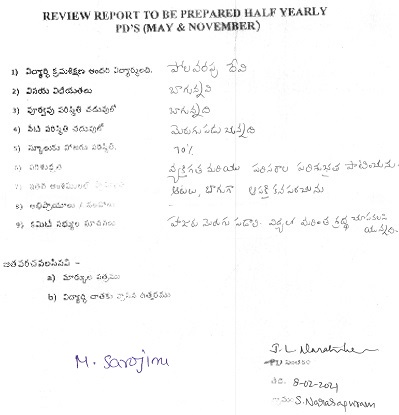 REVIEW REPORT TO BE PREPARED HALF YEARLY
PD'S (MAY & NOVEMBER)
1) విద్యార్థి క్రమశిక్షణ అందరి విద్యార్థులది. పోలవరపు దేవి
2) వినయ విధేయతలు బాగున్నవి
3) పూర్వపు పరిస్థితి చదువులో బాగున్నది
4) నేటి పరిస్థితి చదువులో మెరుగుపడుచున్నది
5) స్కూలుకు హాజరు పరిస్థితి. 70%
6) పరిశుభ్రత వ్యక్తిగత మరియు పరిసరాల పరిశుభ్రత పాటించును.
7) ఇతర అంశములలో ఆటలు, బాగుగా ఆసక్తి కనపరచును
8) అభిప్రాయాలు / -
9) కమిటి సభ్యుల సూచనలు హాజరు మెరుగు పడాలి. విద్యలో మరింత శ్రద్ధ
జతపరచవలసినవి -
a) మార్కుల పత్రము
b) విద్యార్థి చాతకు వ్రాసిన ఉత్తరము
M. Sarojini
సంతకం
తేది. 8-02-2021
S. Narasapuram